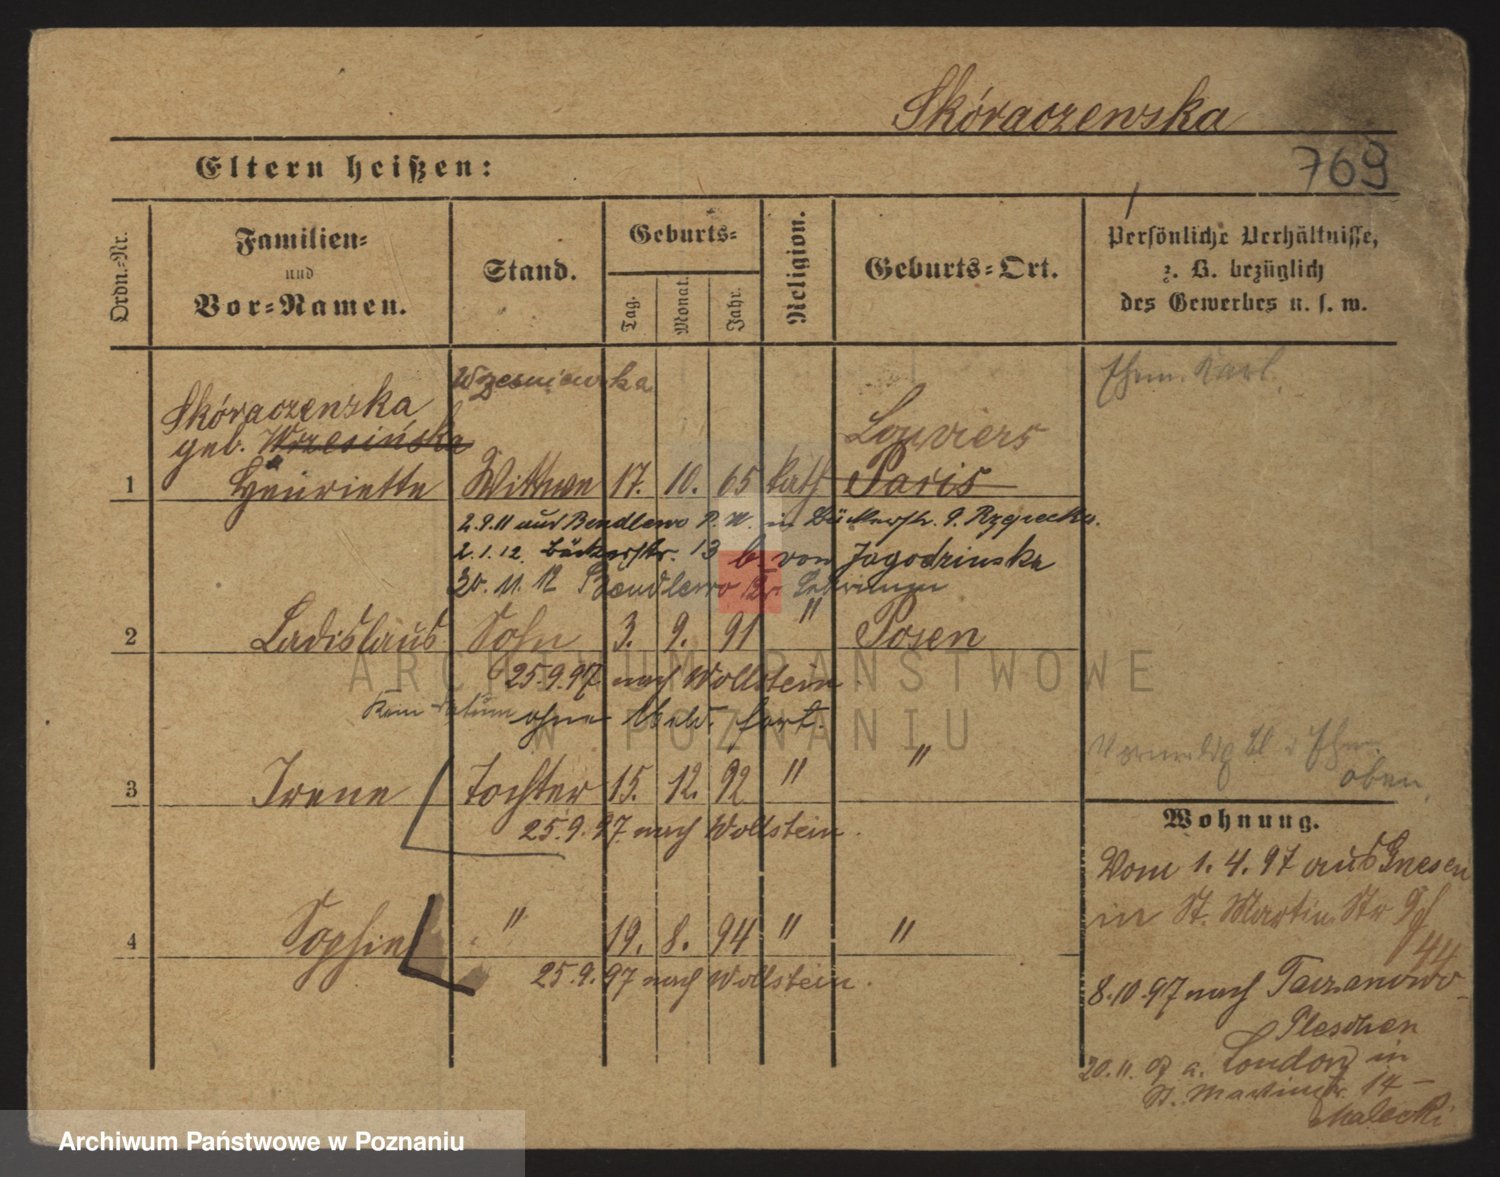 Skóraczewska
769
Eltern heißen:
Ordn.-Nr.
Familien-
und
Vor-Namen.
Stand.
Geburts-
Tag.
Monat.
Jahr.
Religion.
Geburts-Ort.
Persönliche Verhältnisse,
z. B. bezüglich
des Gewerbes u. s. w.
Wzesniewska
Ehem. Karl.
Skóraczewska
geb. Wrzesińska
Louviers
1 Henriette Wittwe 17. 10. 65 kath Paris
2.9.11 aus Bendlewo P. W. in Bäckerstr. 9. Rzepecka.
2.1.12. Bäckerstr. 13 b. von Jagodzinska
30. 11. 12 Bendlewo
2 Ladislaus Sohn 3. 9. 91 " Posen
25.9.97. nach Wollstein.
Kein Datum ohne Meld. fort.
3 Irene Tochter 15. 12. 92 " "
25.9.97. nach Wollstein.
4 Sophie " 19. 8. 94 " "
25.9.97 nach Wollstein.
oben.
Wohnung.
Vom 1.4.97 aus Gnesen
in St. Martin Str
44
8.10.97 nach Taczanowo-
Pleschen
20.11. a. London in
St. Martinstr. 14 -
Malecki
ARCHIWUM PAŃSTWOWE
W POZNANIU
Archiwum Państwowe w Poznaniu